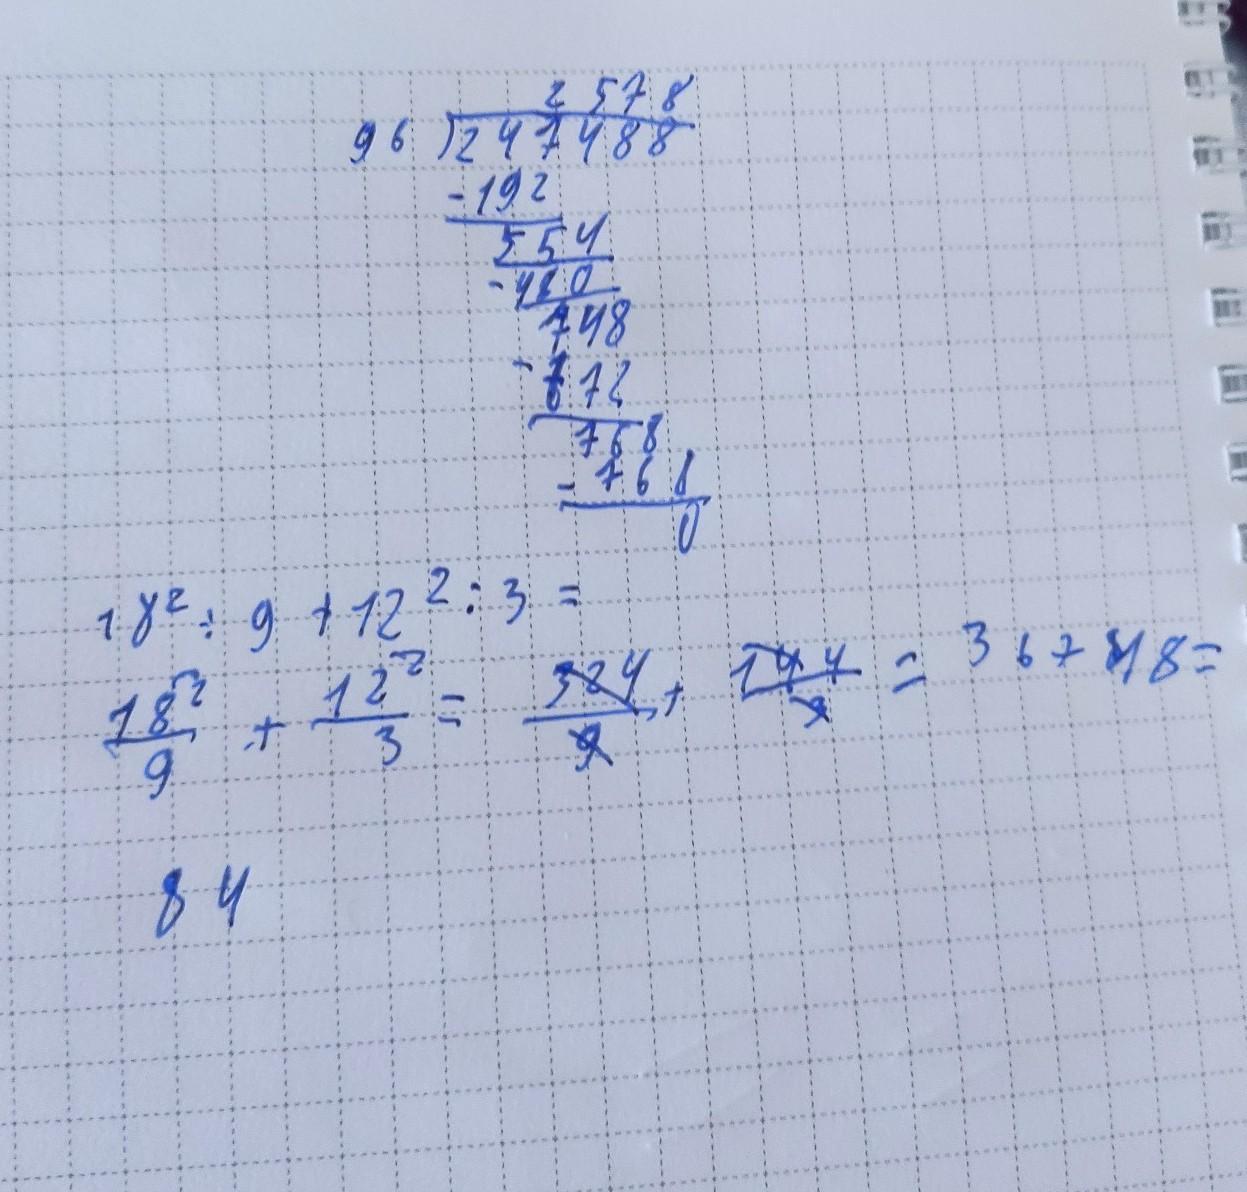 2 578
96 )247488
-192
554
-480
748
-672
768
-768
0
18² : 9 + 12² : 3 =
18²/9 + 12²/3 = 324/9 + 144/3 = 36 + 48 =
84